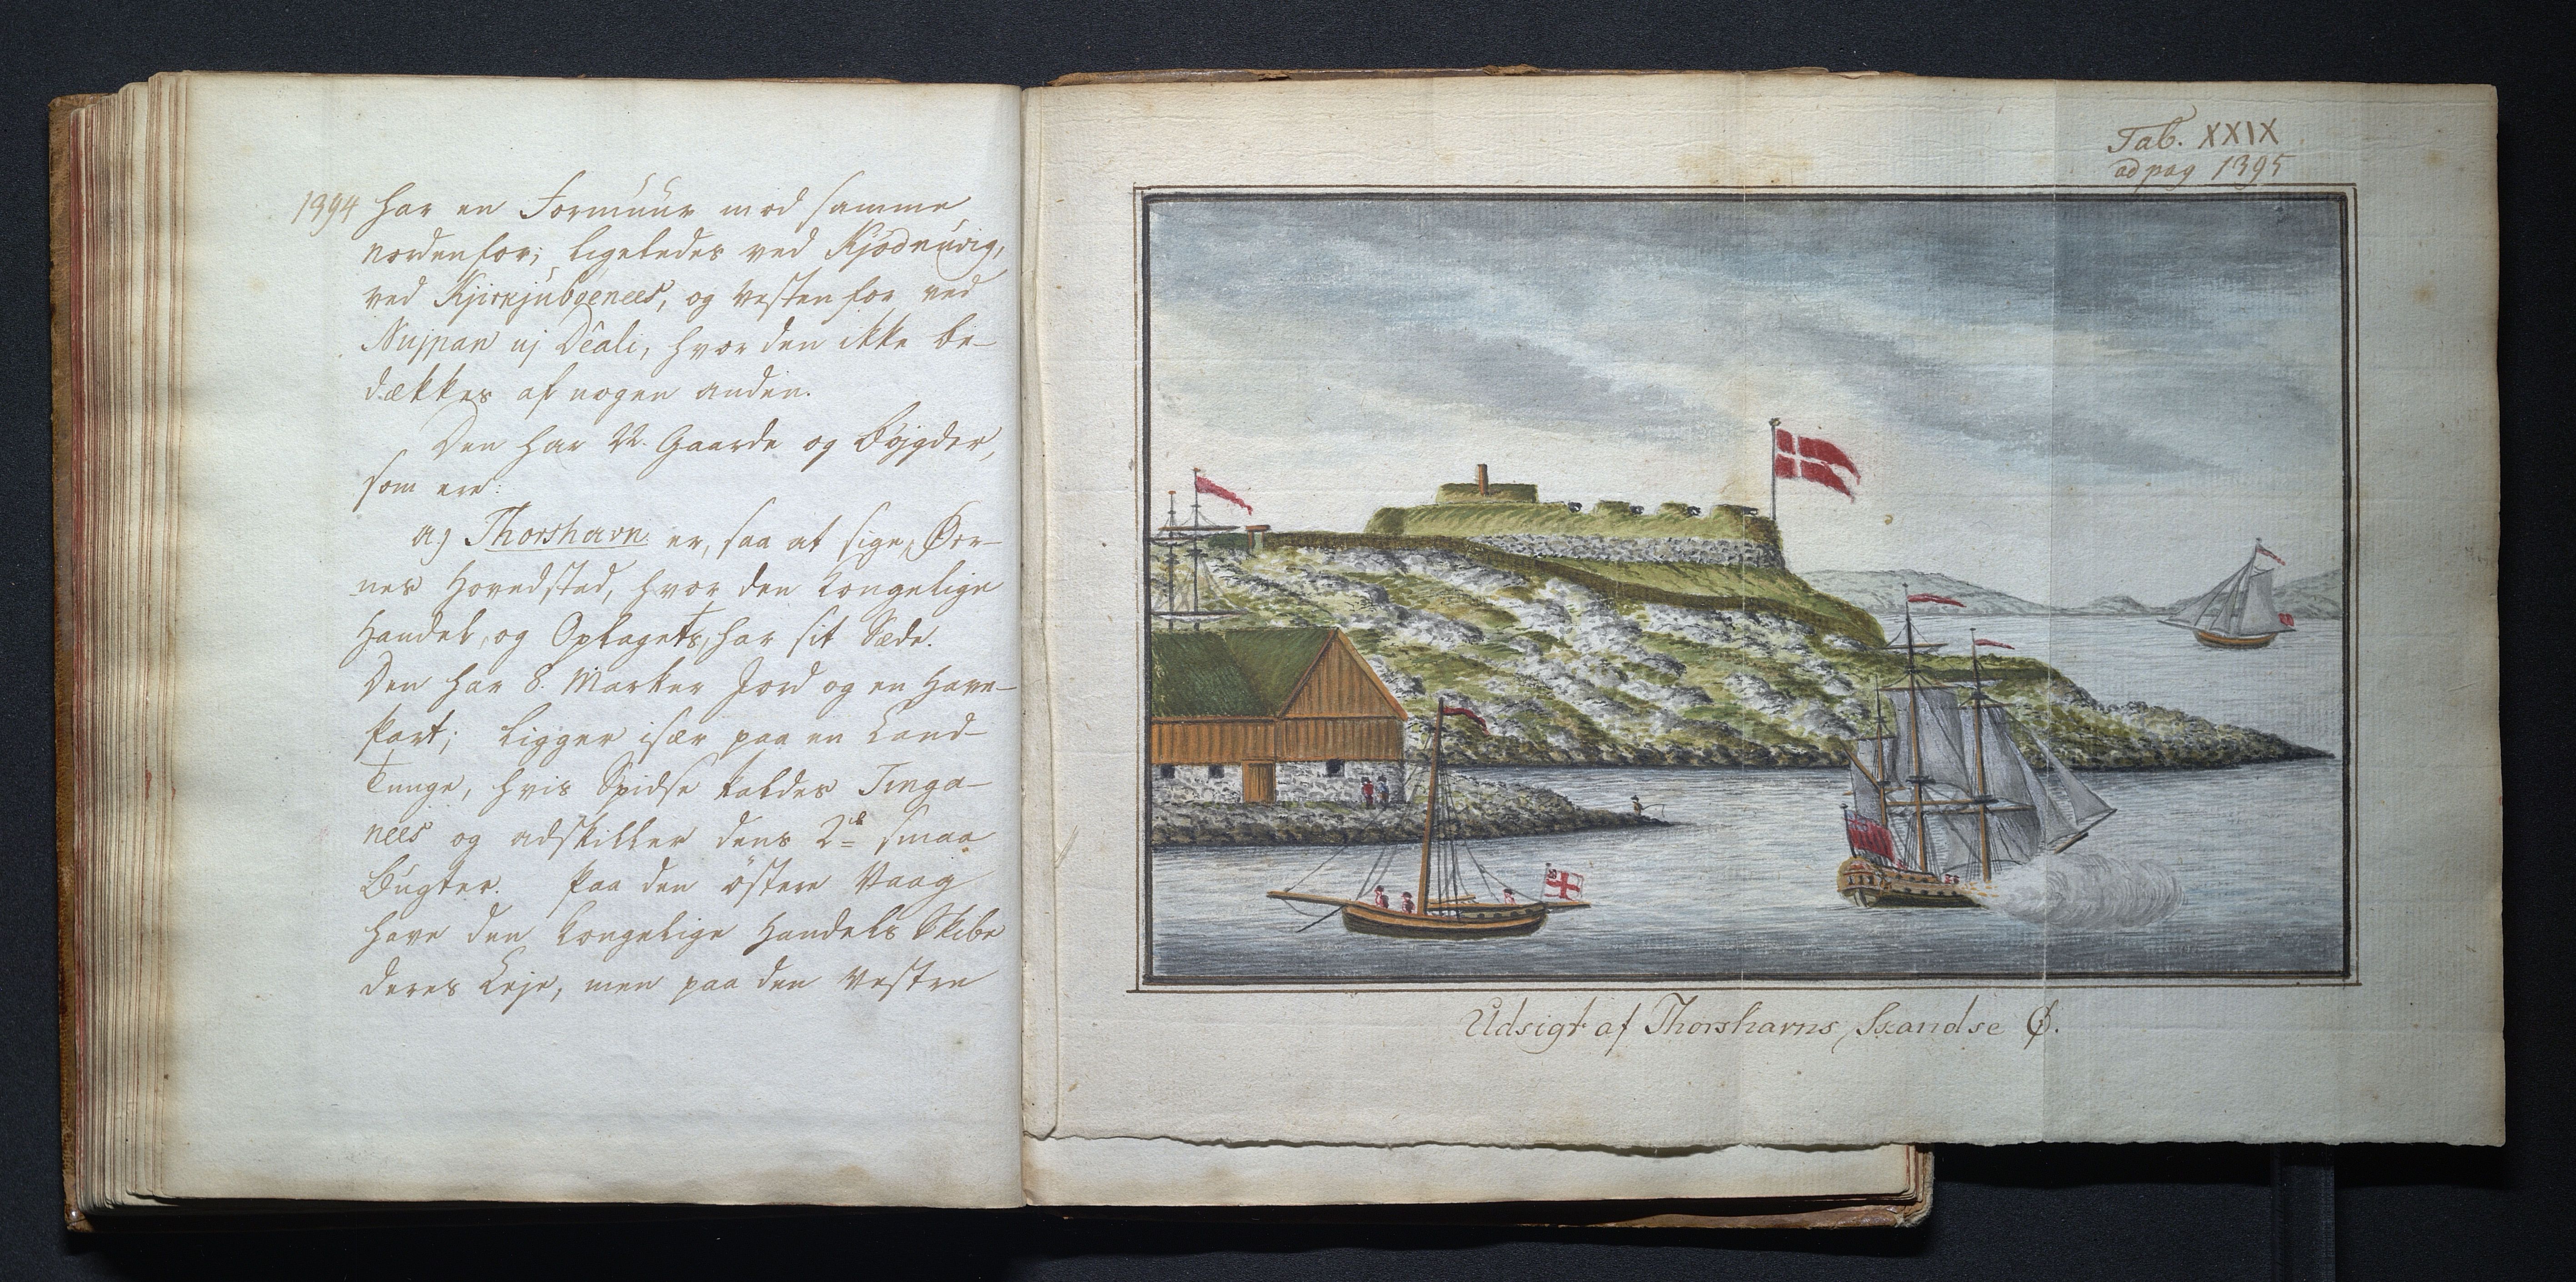 1394 har en Formuur mod samme
nordenfor; ligeledes ved Kjödnuvig,
ved Kjirkjubøenees, og vesten for ved
Nujpan uj Dêali, hvor den ikke be-
dækkes af nogen anden.
Den har 22. Gaarde og Bøjgder,
som ere:
a.) Thorshavn er, saa at sige, Øer-
nes Hovedstad, hvor den kongelige
Handel, og Oplagets, har sit Sæde.
Den har 8. Marker Jord og en Have-
Part; ligger især paa en Land-
Tunge, hvis Spidse kaldes Tinga-
nees og adskiller dens 2de smaa
Bugter. Paa den östere Vaag
have den kongelige Handels Skibe
deres Leje, men paa den Vestre
Tab. XXIX
ad pag 1395
Udsigt af Thorshavns Skandse Ø.